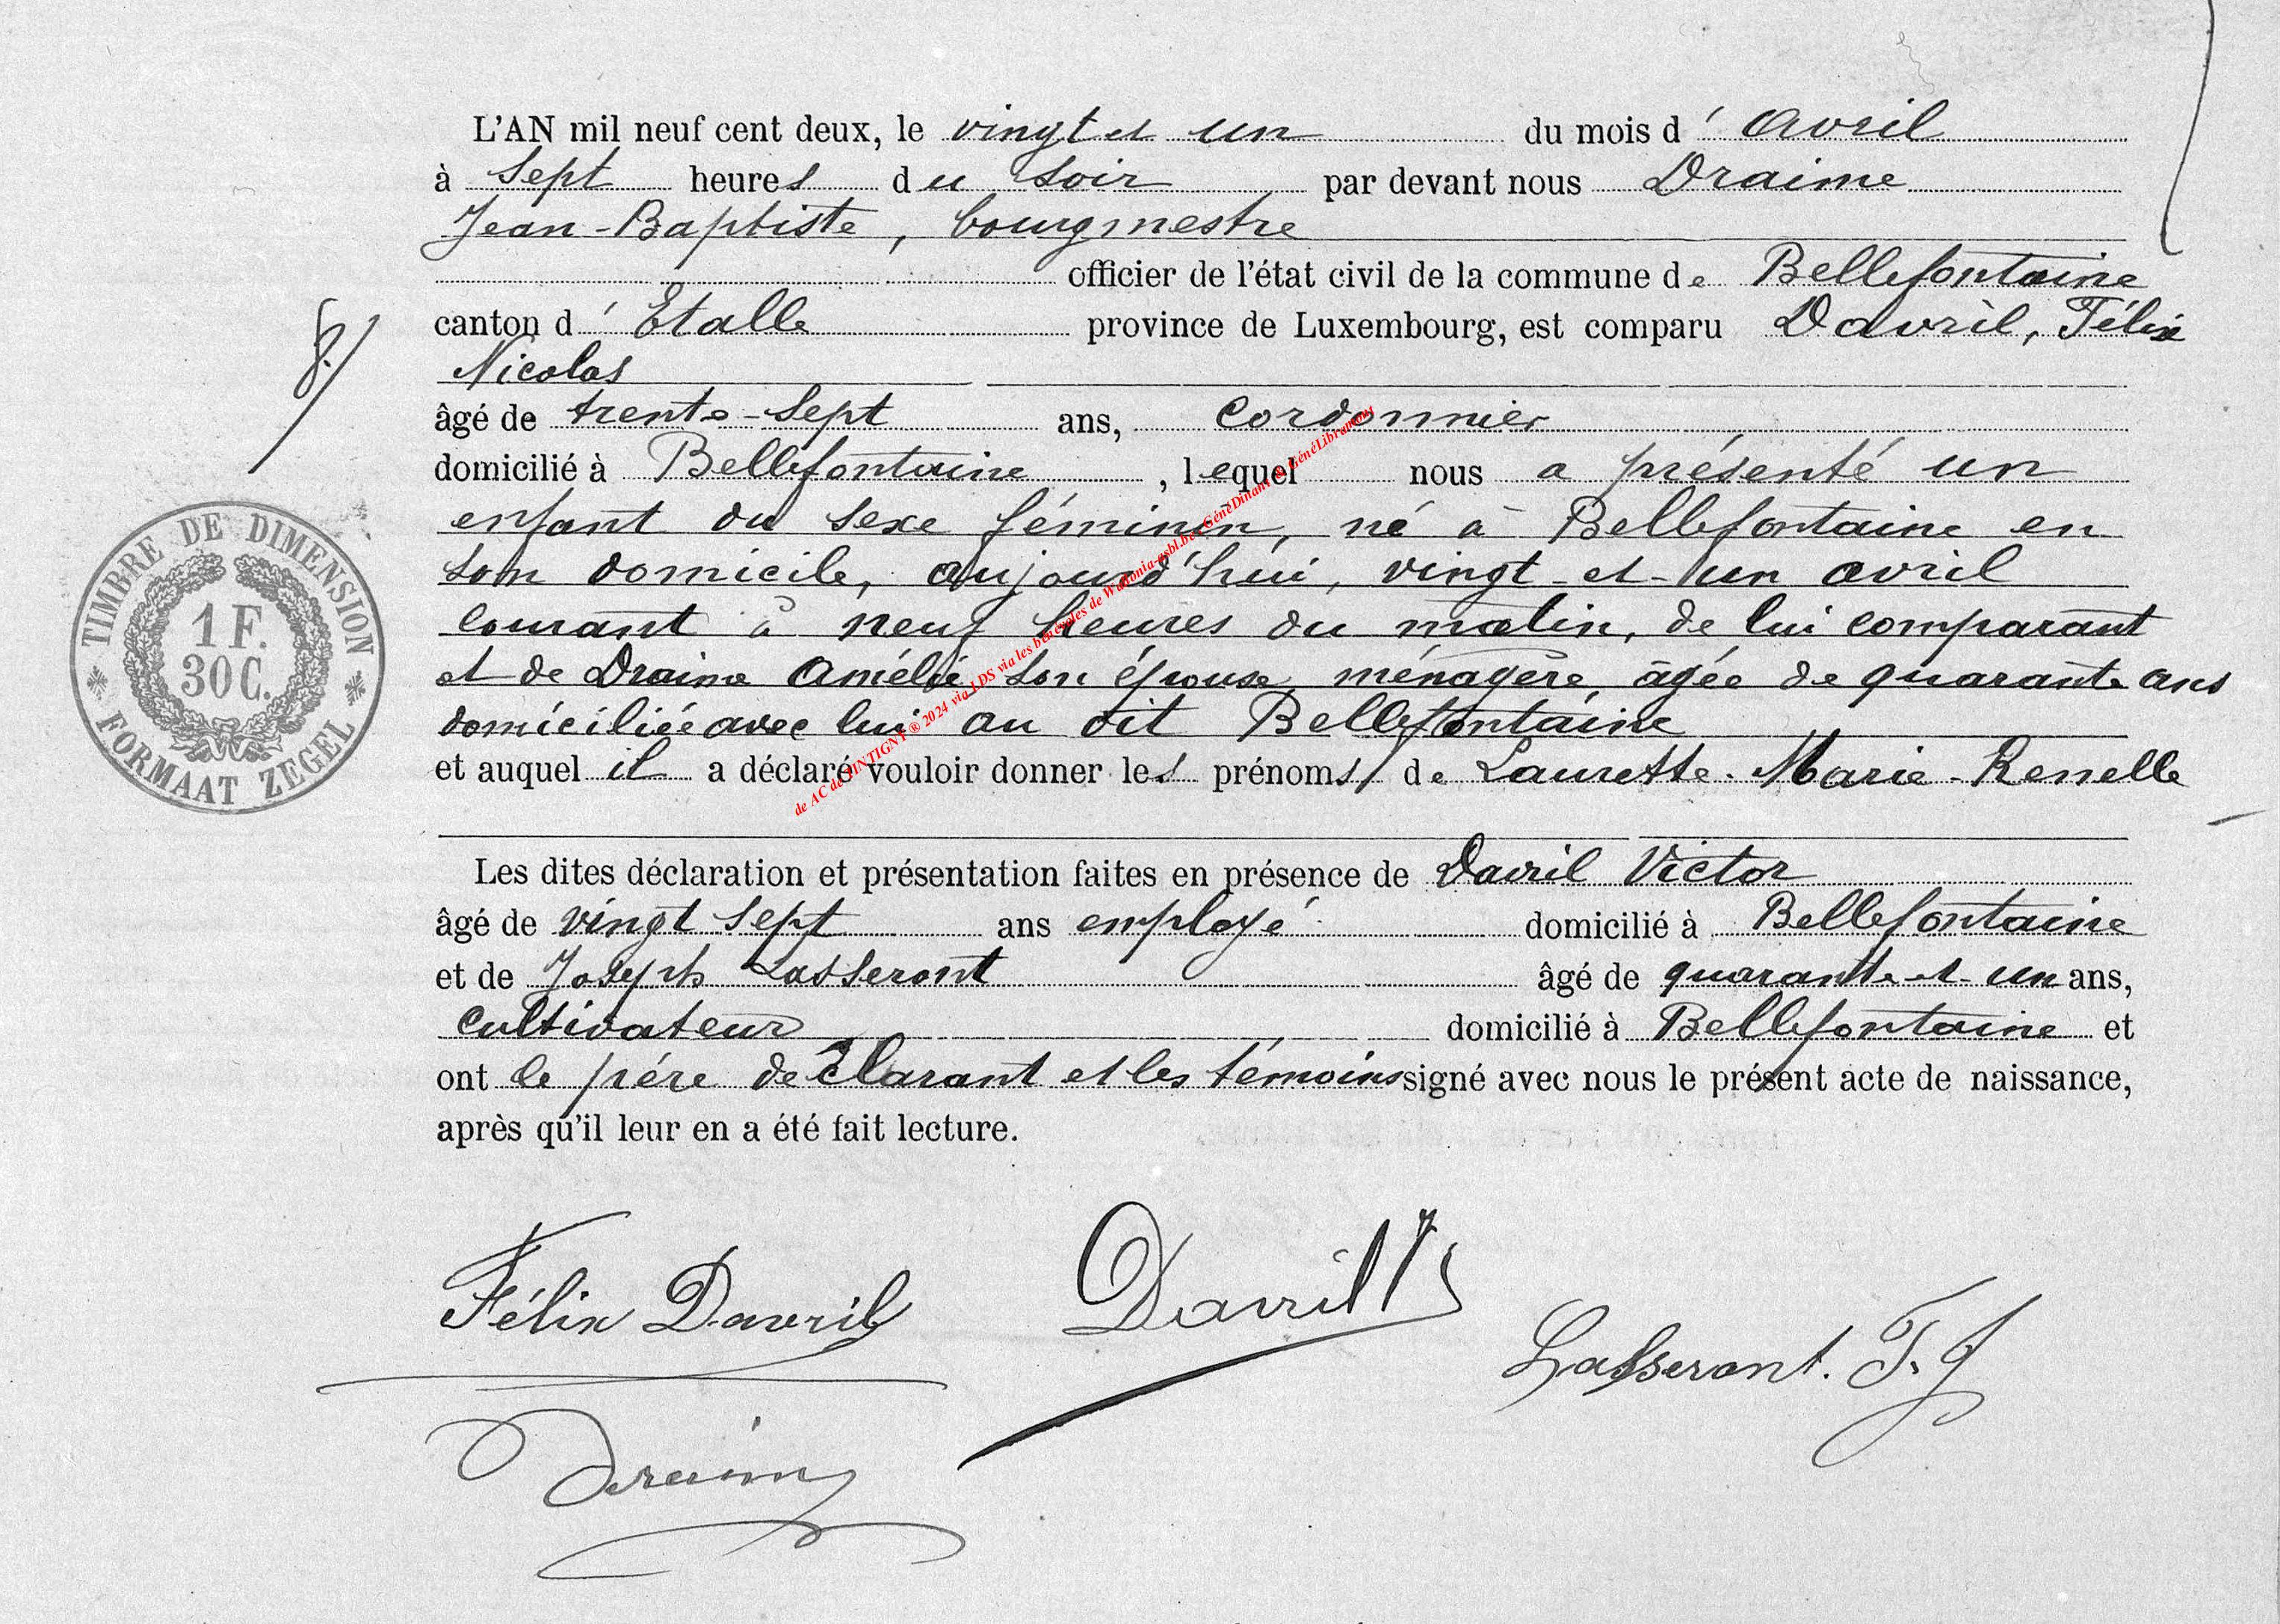 L'AN mil neuf cent deux, le vingt et un du mois d' Avril
à Sept heures du soir par devant nous Draime
Jean-Baptiste, bourgmestre
officier de l'état civil de la commune de Bellefontaine
canton d' Etalle province de Luxembourg, est comparu Davril, Félix
Nicolas
âgé de trente-sept ans, Cordonnier
domicilié à Bellefontaine, lequel nous a présenté un
enfant du sexe féminin, né à Bellefontaine en
son domicile, aujourd'hui, vingt-et-un avril
courant à neuf heures du matin, de lui comparant
et de Draime Amélie son épouse, ménagère, âgée de quarante ans
domiciliée avec lui au dit Bellefontaine
et auquel il a déclaré vouloir donner les prénoms de Laurette-Marie-Renelle
Les dites déclaration et présentation faites en présence de Davril Victor
âgé de vingt sept ans employé domicilié à Bellefontaine
et de Joseph Lasseront âgé de quarante-et-un ans,
Cultivateur domicilié à Bellefontaine et
ont le père déclarant et les témoins signé avec nous le présent acte de naissance,
après qu'il leur en a été fait lecture.
8/
TIMBRE DE DIMENSION
1 F.
30 C.
FORMAAT ZEGEL
de AC de TINTIGNY ® 2024 via LDS via les bénévoles de Wallonia-asbl.be GénéDinant & GénéLibramont
Félix Davril
Davril
Lasseront. T. J
Draime